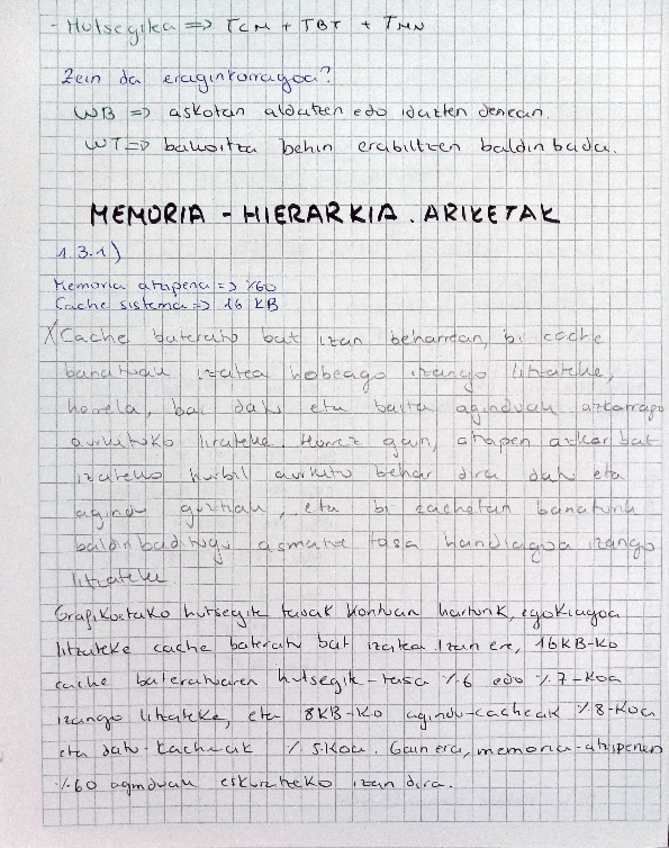 - Hutsegitea => TCM + TBT + TMN
Zein da eraginkorragoa?
WB => askotan aldatzen edo idazten denean.
WT => bakoitza behin erabiltzen baldin bada.
MEMORIA - HIERARKIA. ARIKETAK
1.3.1)
Memoria atzipena => %60
Cache sistema => 16 KB
X Cache bateratu bat izan beharrean, bi cache
banatuak izatea hobeago izango litzateke,
horrela, bai datu eta baita aginduak azkarrago
aurkituko lirateke. Horrez gain, atzipen azkar bat
izateko hurbil aurkitu behar dira datu eta
agindu guztiak, eta bi cachetan banaturik
baldin baditugu asmatze tasa handiagoa izango
litzateke.
Grafikoetako hutsegite tasak kontuan harturik, egokiagoa
litzateke cache bateratu bat izatea. Izan ere, 16KB-ko
cache bateratuaren hutsegite-tasa %6 edo %7-koa
izango litzateke, eta 8KB-ko agindu-cacheak %8-koa
eta datu-cacheak %5-koa. Gainera, memoria-atzipenen
%60 aginduak eskuratzeko izan dira.